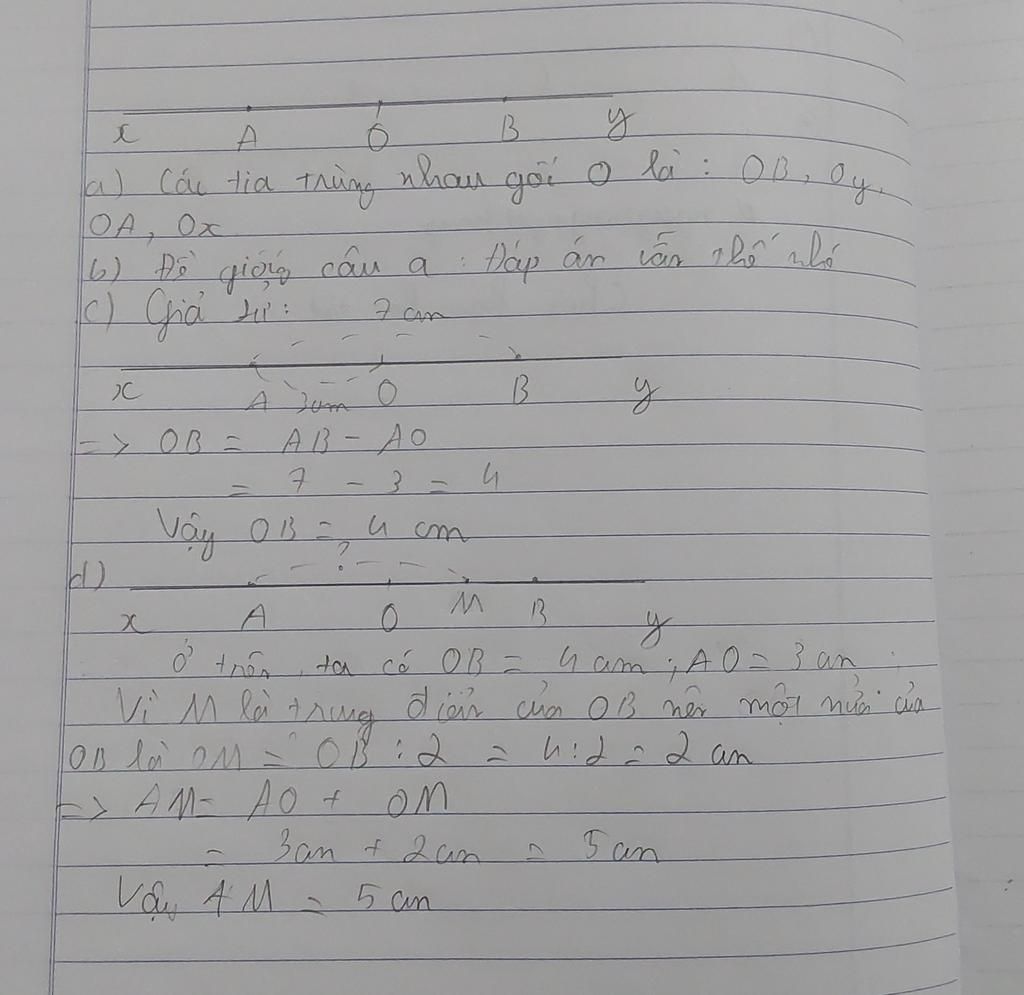 x A O B y
a) Các tia trùng nhau gối O là : OB, Oy,
OA, Ox
b) Đề giống câu a : Đáp án vẫn thế nhé
c) Giả sử : 7 cm
x A 3cm O B y
=> OB = AB - AO
= 7 - 3 = 4
Vậy OB = 4 cm
d) ?
x A O M B y
Ở trên, ta có OB = 4 cm ; AO = 3 cm
Vì M là trung điểm của OB nên một nửa của
OB là OM = OB : 2 = 4 : 2 = 2 cm
=> AM = AO + OM
= 3cm + 2cm = 5 cm
Vậy AM = 5 cm